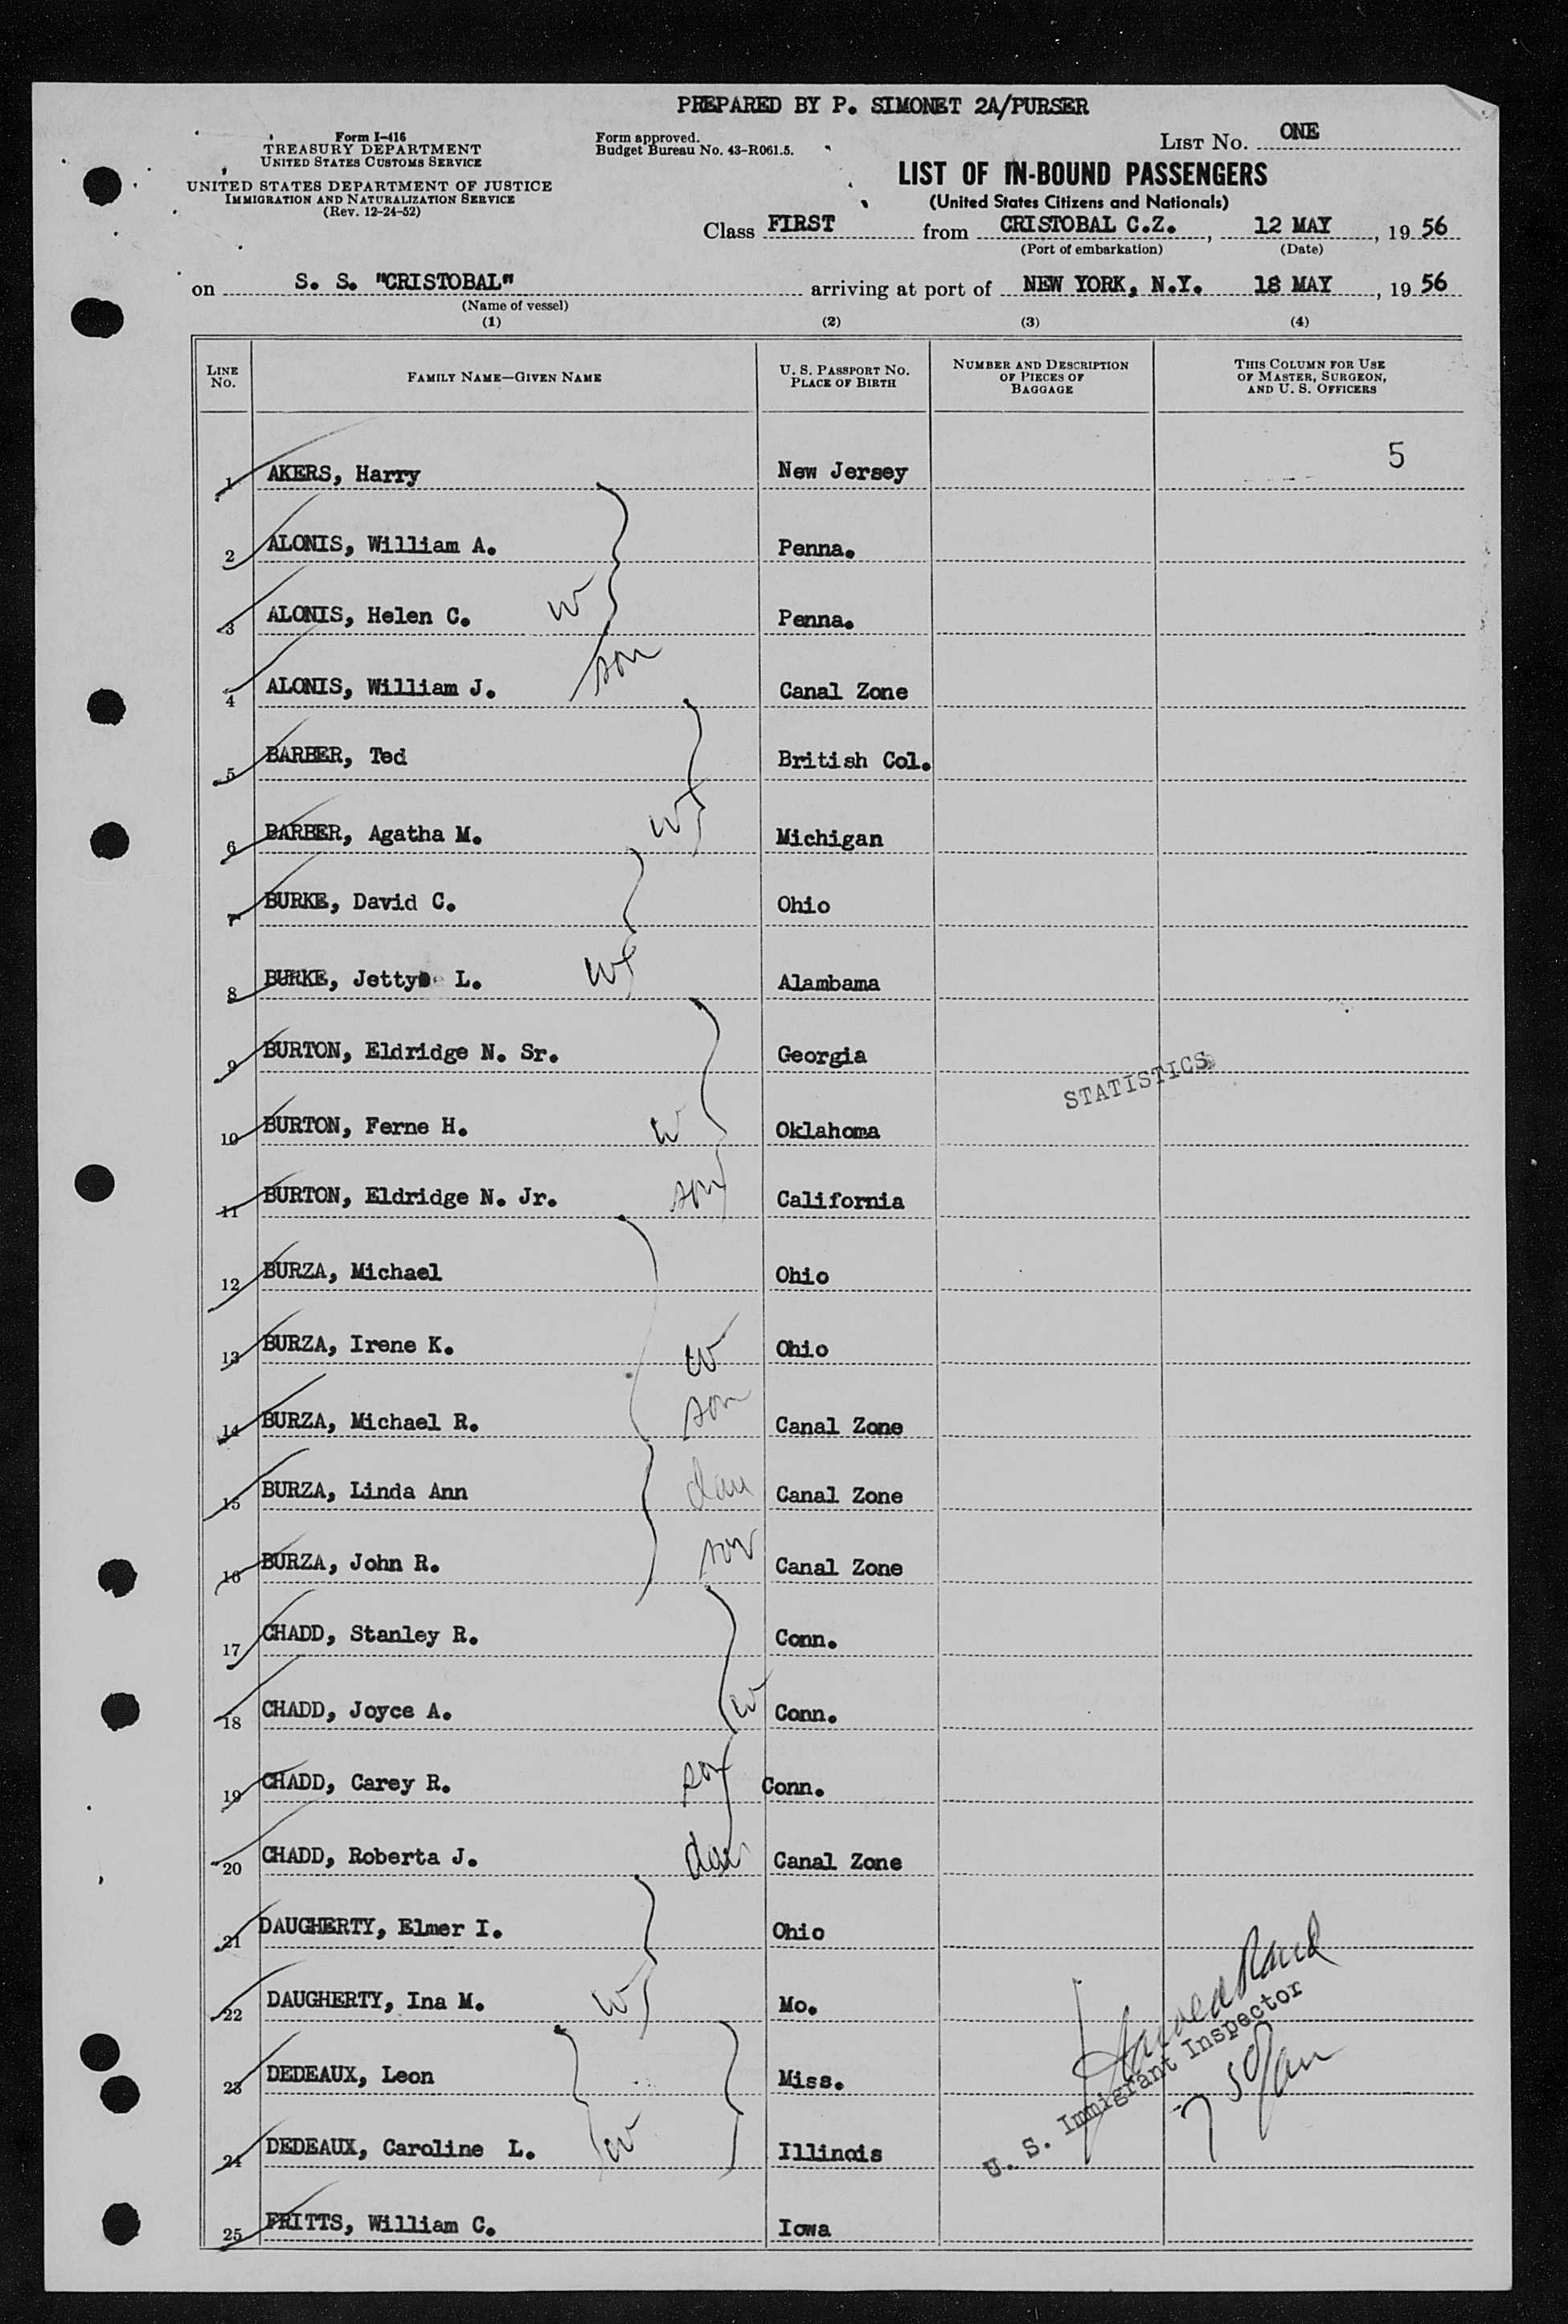 PREPARED BY P. SIMONET 2A/PURSER
Form I-416
TREASURY DEPARTMENT
UNITED STATES CUSTOMS SERVICE
UNITED STATES DEPARTMENT OF JUSTICE
IMMIGRATION AND NATURALIZATION SERVICE
(Rev. 12-24-52)
Form approved.
Budget Bureau No. 43-R061.5.
LIST NO. ONE
LIST OF IN-BOUND PASSENGERS
(United States Citizens and Nationals)
Class FIRST from CRISTOBAL C.Z., 12 MAY, 19 56
(Port of embarkation) (Date)
on S. S. "CRISTOBAL" arriving at port of NEW YORK, N.Y. 18 MAY, 19 56
(Name of vessel)
(1) (2) (3) (4)
LINE NO. FAMILY NAME—GIVEN NAME U. S. PASSPORT NO. PLACE OF BIRTH NUMBER AND DESCRIPTION OF PIECES OF BAGGAGE THIS COLUMN FOR USE OF MASTER, SURGEON, AND U. S. OFFICERS
5
1 AKERS, Harry New Jersey
2 ALONIS, William A. Penna.
3 ALONIS, Helen C. w Penna.
4 ALONIS, William J. son Canal Zone
5 BARBER, Ted British Col.
6 BARBER, Agatha M. w Michigan
7 BURKE, David C. Ohio
8 BURKE, Jettye L. w Alambama
9 BURTON, Eldridge N. Sr. Georgia
STATISTICS
10 BURTON, Ferne H. w Oklahoma
11 BURTON, Eldridge N. Jr. son California
12 BURZA, Michael Ohio
13 BURZA, Irene K. w Ohio
14 BURZA, Michael R. son Canal Zone
15 BURZA, Linda Ann dau Canal Zone
16 BURZA, John R. son Canal Zone
17 CHADD, Stanley R. Conn.
18 CHADD, Joyce A. w Conn.
19 CHADD, Carey R. son Conn.
20 CHADD, Roberta J. dau Canal Zone
21 DAUGHERTY, Elmer I. Ohio
22 DAUGHERTY, Ina M. w Mo.
23 DEDEAUX, Leon Miss.
24 DEDEAUX, Caroline L. w Illinois
U. S. Immigrant Inspector
25 FRITTS, William C. Iowa